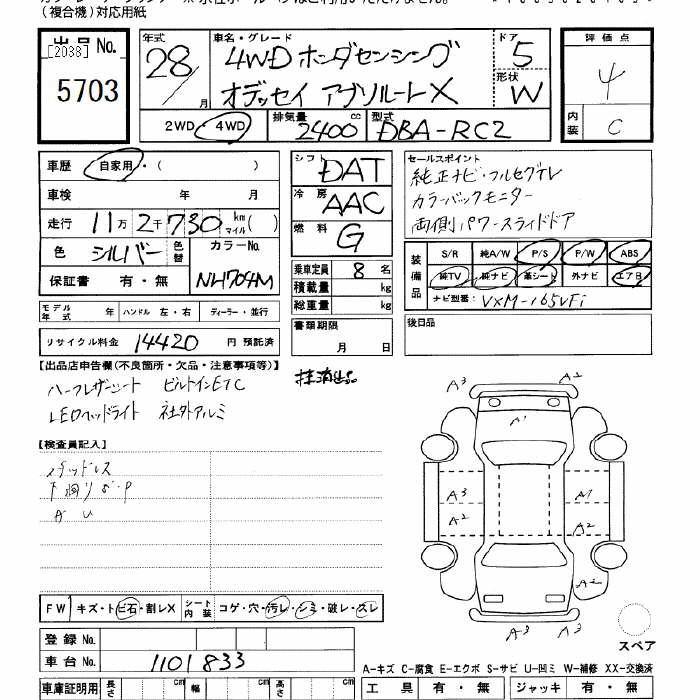 (複合機)対応用紙
出品No. [2038]
5703
年式 28/ 月
車名・グレード
4WD ホンダセンシング
オデッセイ アブソルートX
ドア 5
形状 W
評価点 4
内装 C
2WD・4WD
排気量 2400 cc
型式 DBA-RC2
車歴 自家用・( )
車検 年 月
走行 11万2千730 km マイル( )
色 シルバー 色替 カラーNo. NH704M
保証書 有・無
モデル年式 年 ハンドル 左・右 ディーラー・並行
リサイクル料金 14420 円 預託済
シフト DAT
冷房 AAC
燃料 G
乗車定員 8 名
積載量 kg
総重量 kg
書類期限
月 日
セールスポイント
純正ナビ・フルセグTV
カラーバックモニター
両側パワースライドドア
装備品
S/R 純A/W P/S P/W ABS
純TV 純ナビ 革シート 外ナビ エアB
ナビ型番: VXM-165VFi
後日品
【出品店申告欄(不良箇所・欠品・注意事項等)】
ハーフレザーシート ビルトインETC
LEDヘッドライト 社外アルミ
抹消出品
【検査員記入】
スタッドレス
A U
A3 A2
A1
A3 A1
A2 A2
A2
A3 A3
スペア
FW キズ・トビ石・割レX シート内装 コゲ・穴・汚レ・シミ・破レ・スレ
登録No.
車台No. 1101833
車庫証明用 長さ cm 幅 cm 高さ cm
A-キズ C-腐食 E-エクボ S-サビ U-凹ミ W-補修 XX-交換済
工具 有・無 ジャッキ 有・無